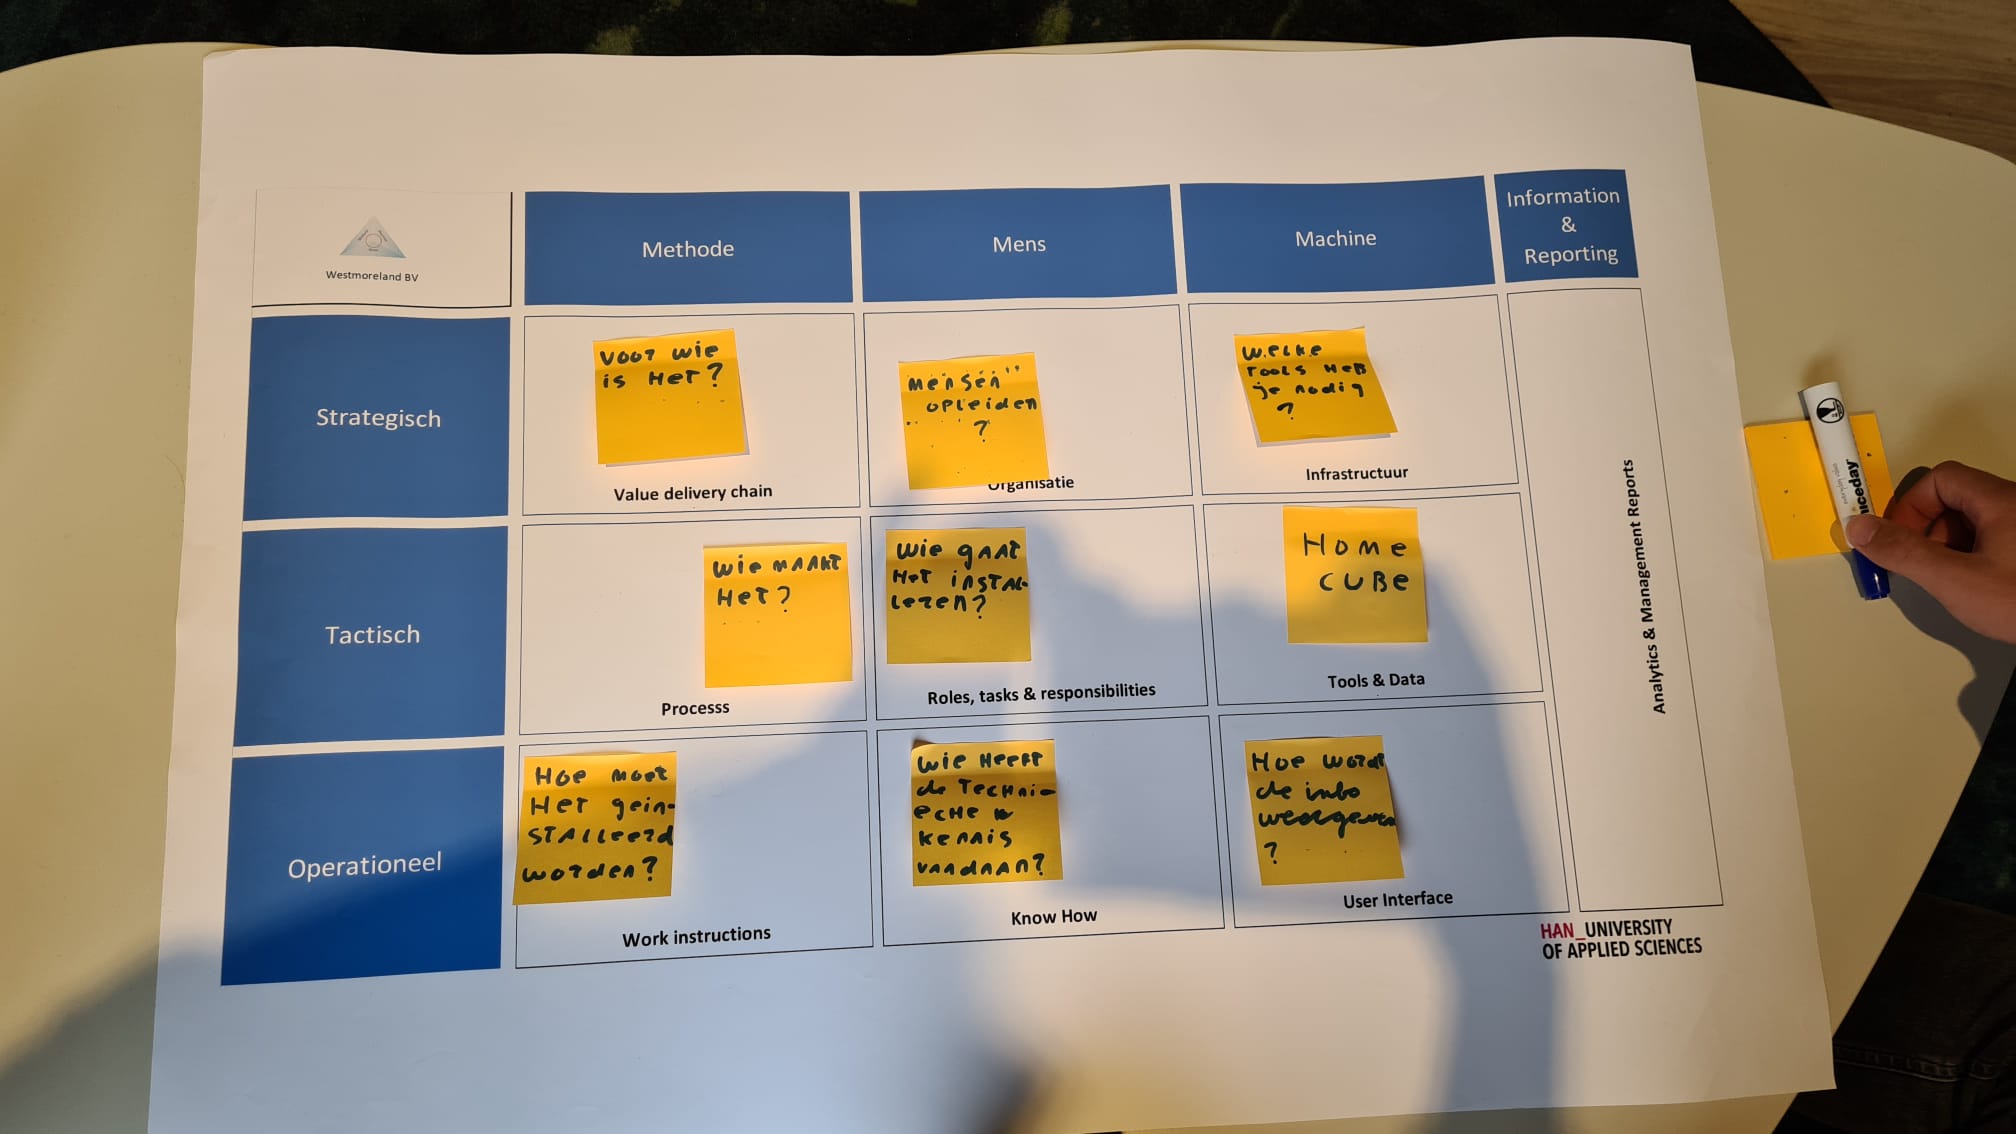 Westmoreland BV
Methode
Mens
Machine
Information
&
Reporting
Strategisch
Voor wie
is Het?
Value delivery chain
Mensen
opleiden
?
Organisatie
Welke
tools heb
je nodig
?
Infrastructuur
Analytics & Management Reports
Tactisch
Wie maakt
Het?
Processs
Wie gaat
Het instal-
leren?
Roles, tasks & responsibilities
Home
Cube
Tools & Data
Operationeel
Hoe moet
Het gein-
stalleerd
worden?
Work instructions
Wie Heeft
de Techni-
eche
kennis
vandaan?
Know How
Hoe wordt
de info
weergeven
?
User Interface
HAN_UNIVERSITY
OF APPLIED SCIENCES
niceday